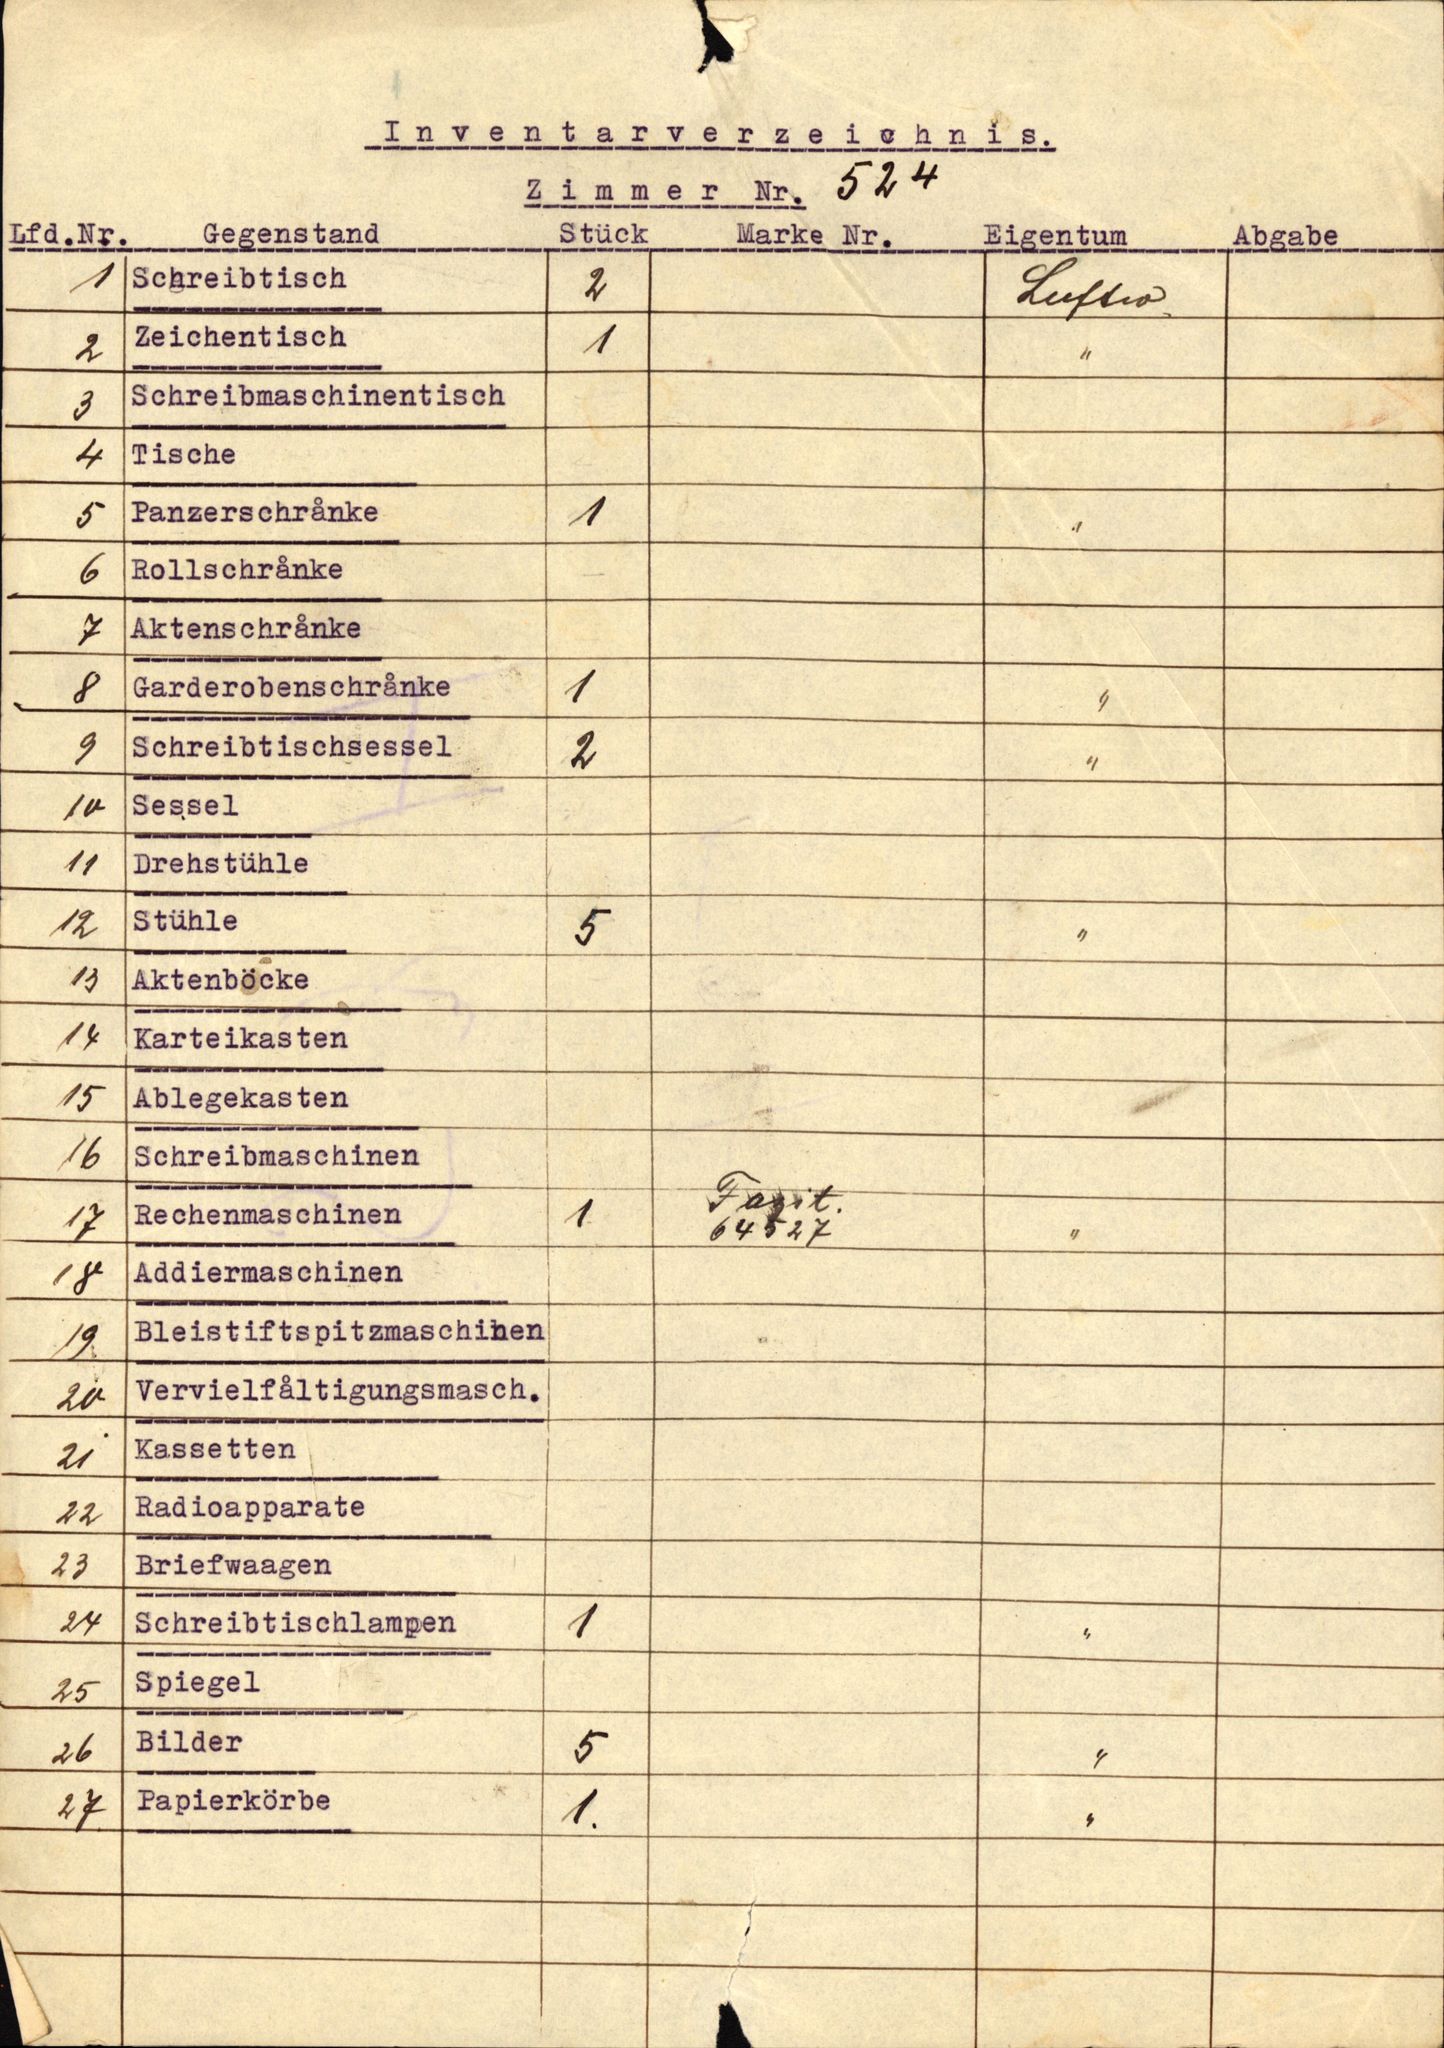 Inventarverzeichnis.
Zimmer Nr. 524
Lfd.Nr. Gegenstand Stück Marke Nr. Eigentum Abgabe
1 Schreibtisch 2 Luftw.
2 Zeichentisch 1 "
3 Schreibmaschinentisch
4 Tische
5 Panzerschrånke 1 "
6 Rollschrånke
7 Aktenschrånke
8 Garderobenschrånke 1 "
9 Schreibtischsessel 2 "
10 Sessel
11 Drehstühle
12 Stühle 5 "
13 Aktenböcke
14 Karteikasten
15 Ablegekasten
16 Schreibmaschinen
17 Rechenmaschinen 1 Fazit. "
64527
18 Addiermaschinen
19 Bleistiftspitzmaschinen
20 Vervielfåltigungsmasch.
21 Kassetten
22 Radioapparate
23 Briefwaagen
24 Schreibtischlampen 1 "
25 Spiegel
26 Bilder 5 "
27 Papierkörbe 1. "